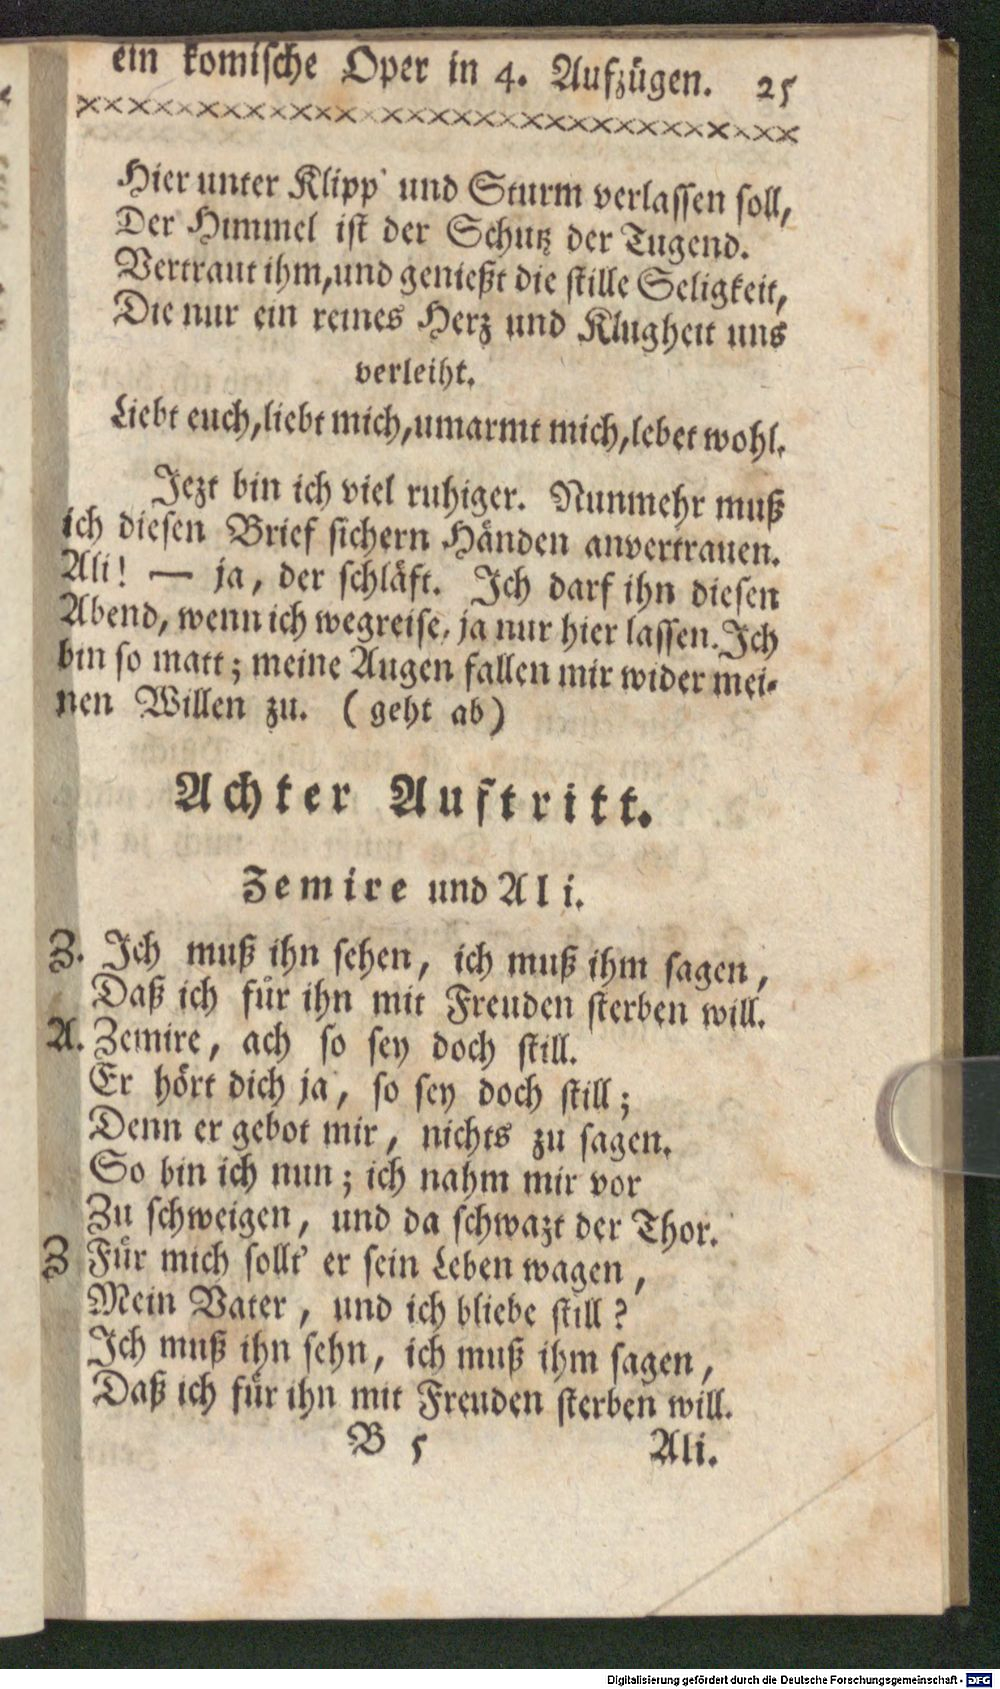 ein komische Oper in 4. Aufzügen. 25
Hier unter Klipp' und Sturm verlassen soll,
Der Himmel ist der Schutz der Tugend.
Vertraut ihm, und genießt die stille Seligkeit,
Die nur ein reines Herz und Klugheit uns
verleiht.
Liebt euch, liebt mich, umarmt mich, lebet wohl.
Jezt bin ich viel ruhiger. Nunmehr muß
ich diesen Brief sichern Händen anvertrauen.
Ali! — ja, der schläft. Ich darf ihn diesen
Abend, wenn ich wegreise, ja nur hier lassen. Ich
bin so matt; meine Augen fallen mir wider mei-
nen Willen zu. (geht ab)
Achter Auftritt.
Zemire und Ali.
Z. Ich muß ihn sehen, ich muß ihm sagen,
Daß ich für ihn mit Freuden sterben will.
A. Zemire, ach so sey doch still.
Er hört dich ja, so sey doch still;
Denn er gebot mir, nichts zu sagen.
So bin ich nun; ich nahm mir vor
Zu schweigen, und da schwazt der Thor.
Z Für mich sollt' er sein Leben wagen,
Mein Vater, und ich bliebe still?
Ich muß ihn sehn, ich muß ihm sagen,
Daß ich für ihn mit Freuden sterben will.
B 5 Ali.
Digitalisierung gefördert durch die Deutsche Forschungsgemeinschaft - DFG